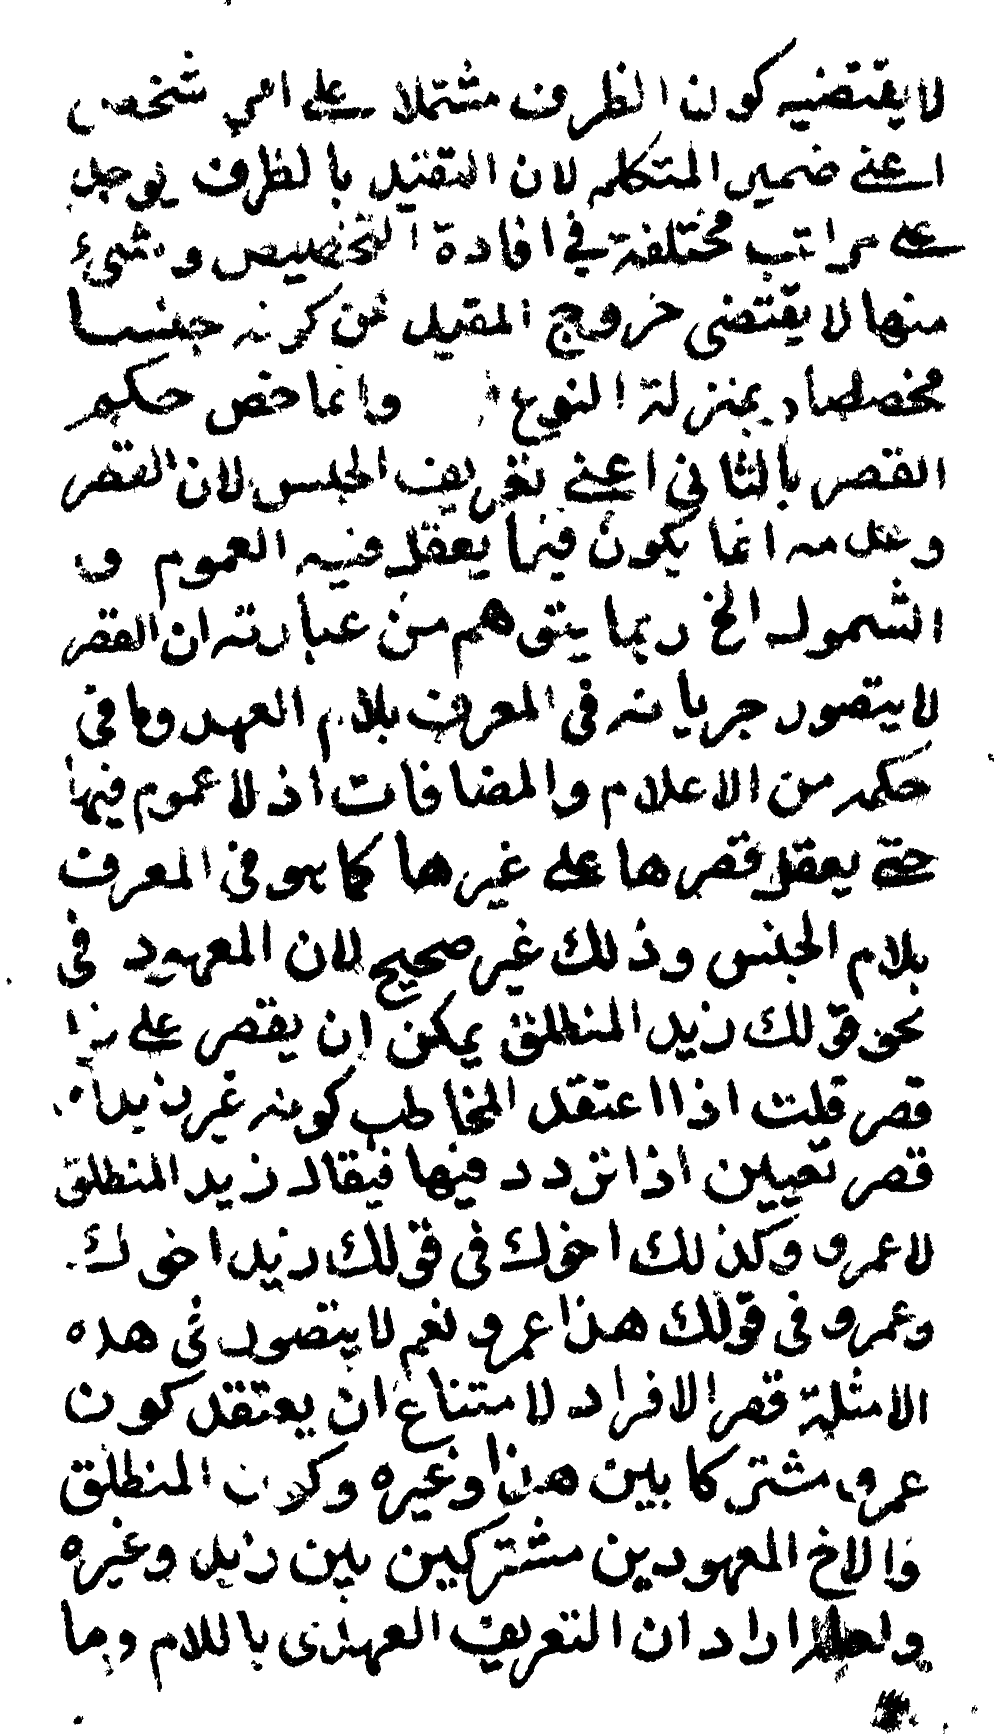 لا يقتضيه كون الظرف مشتملا على امر شخص
اعنى ضمير المتكلم لان التقييد بالظرف يوجد
على مراتب مختلفة فى افادة التخصيص وشئ
منها لا يقتضى خروج المقيد عن كونه جنسا
مخصصا بمنزلة النوع وانما خص حكم
القصر بالثانى اعنى تعريف الجنس لان القصر
وعدمه انما يكون فيما يعقل فيه العموم و
الشمول الخ ربما يتوهم من عبارته ان القصر
لا يتصور جريانه فى المعرف بلام العهد وما فى
حكمه من الاعلام والمضافات اذ لا عموم فيها
حتى يعقل قصرها على غيرها كما هو فى المعرف
بلام الجنس وذلك غير صحيح لان المعهود فى
نحو قولك زيد المنطلق يمكن ان يقصر على زيد
قصر قلب اذا اعتقد المخاطب كونه غير زيد او
قصر تعيين اذا تردد فيها فيقال زيد المنطلق
لا عمرو وكذلك اخوك فى قولك زيد اخوك
وعمرو فى قولك هذا عمرو نعم لا يتصور فى هذه
الامثلة قصر الافراد لامتناع ان يعتقد كون
عمرو مشتركا بين هذا وغيره وكون المنطلق
والاخ المعهودين مشتركين بين زيد وغيره
ولعله اراد ان التعريف العهدى باللام وما